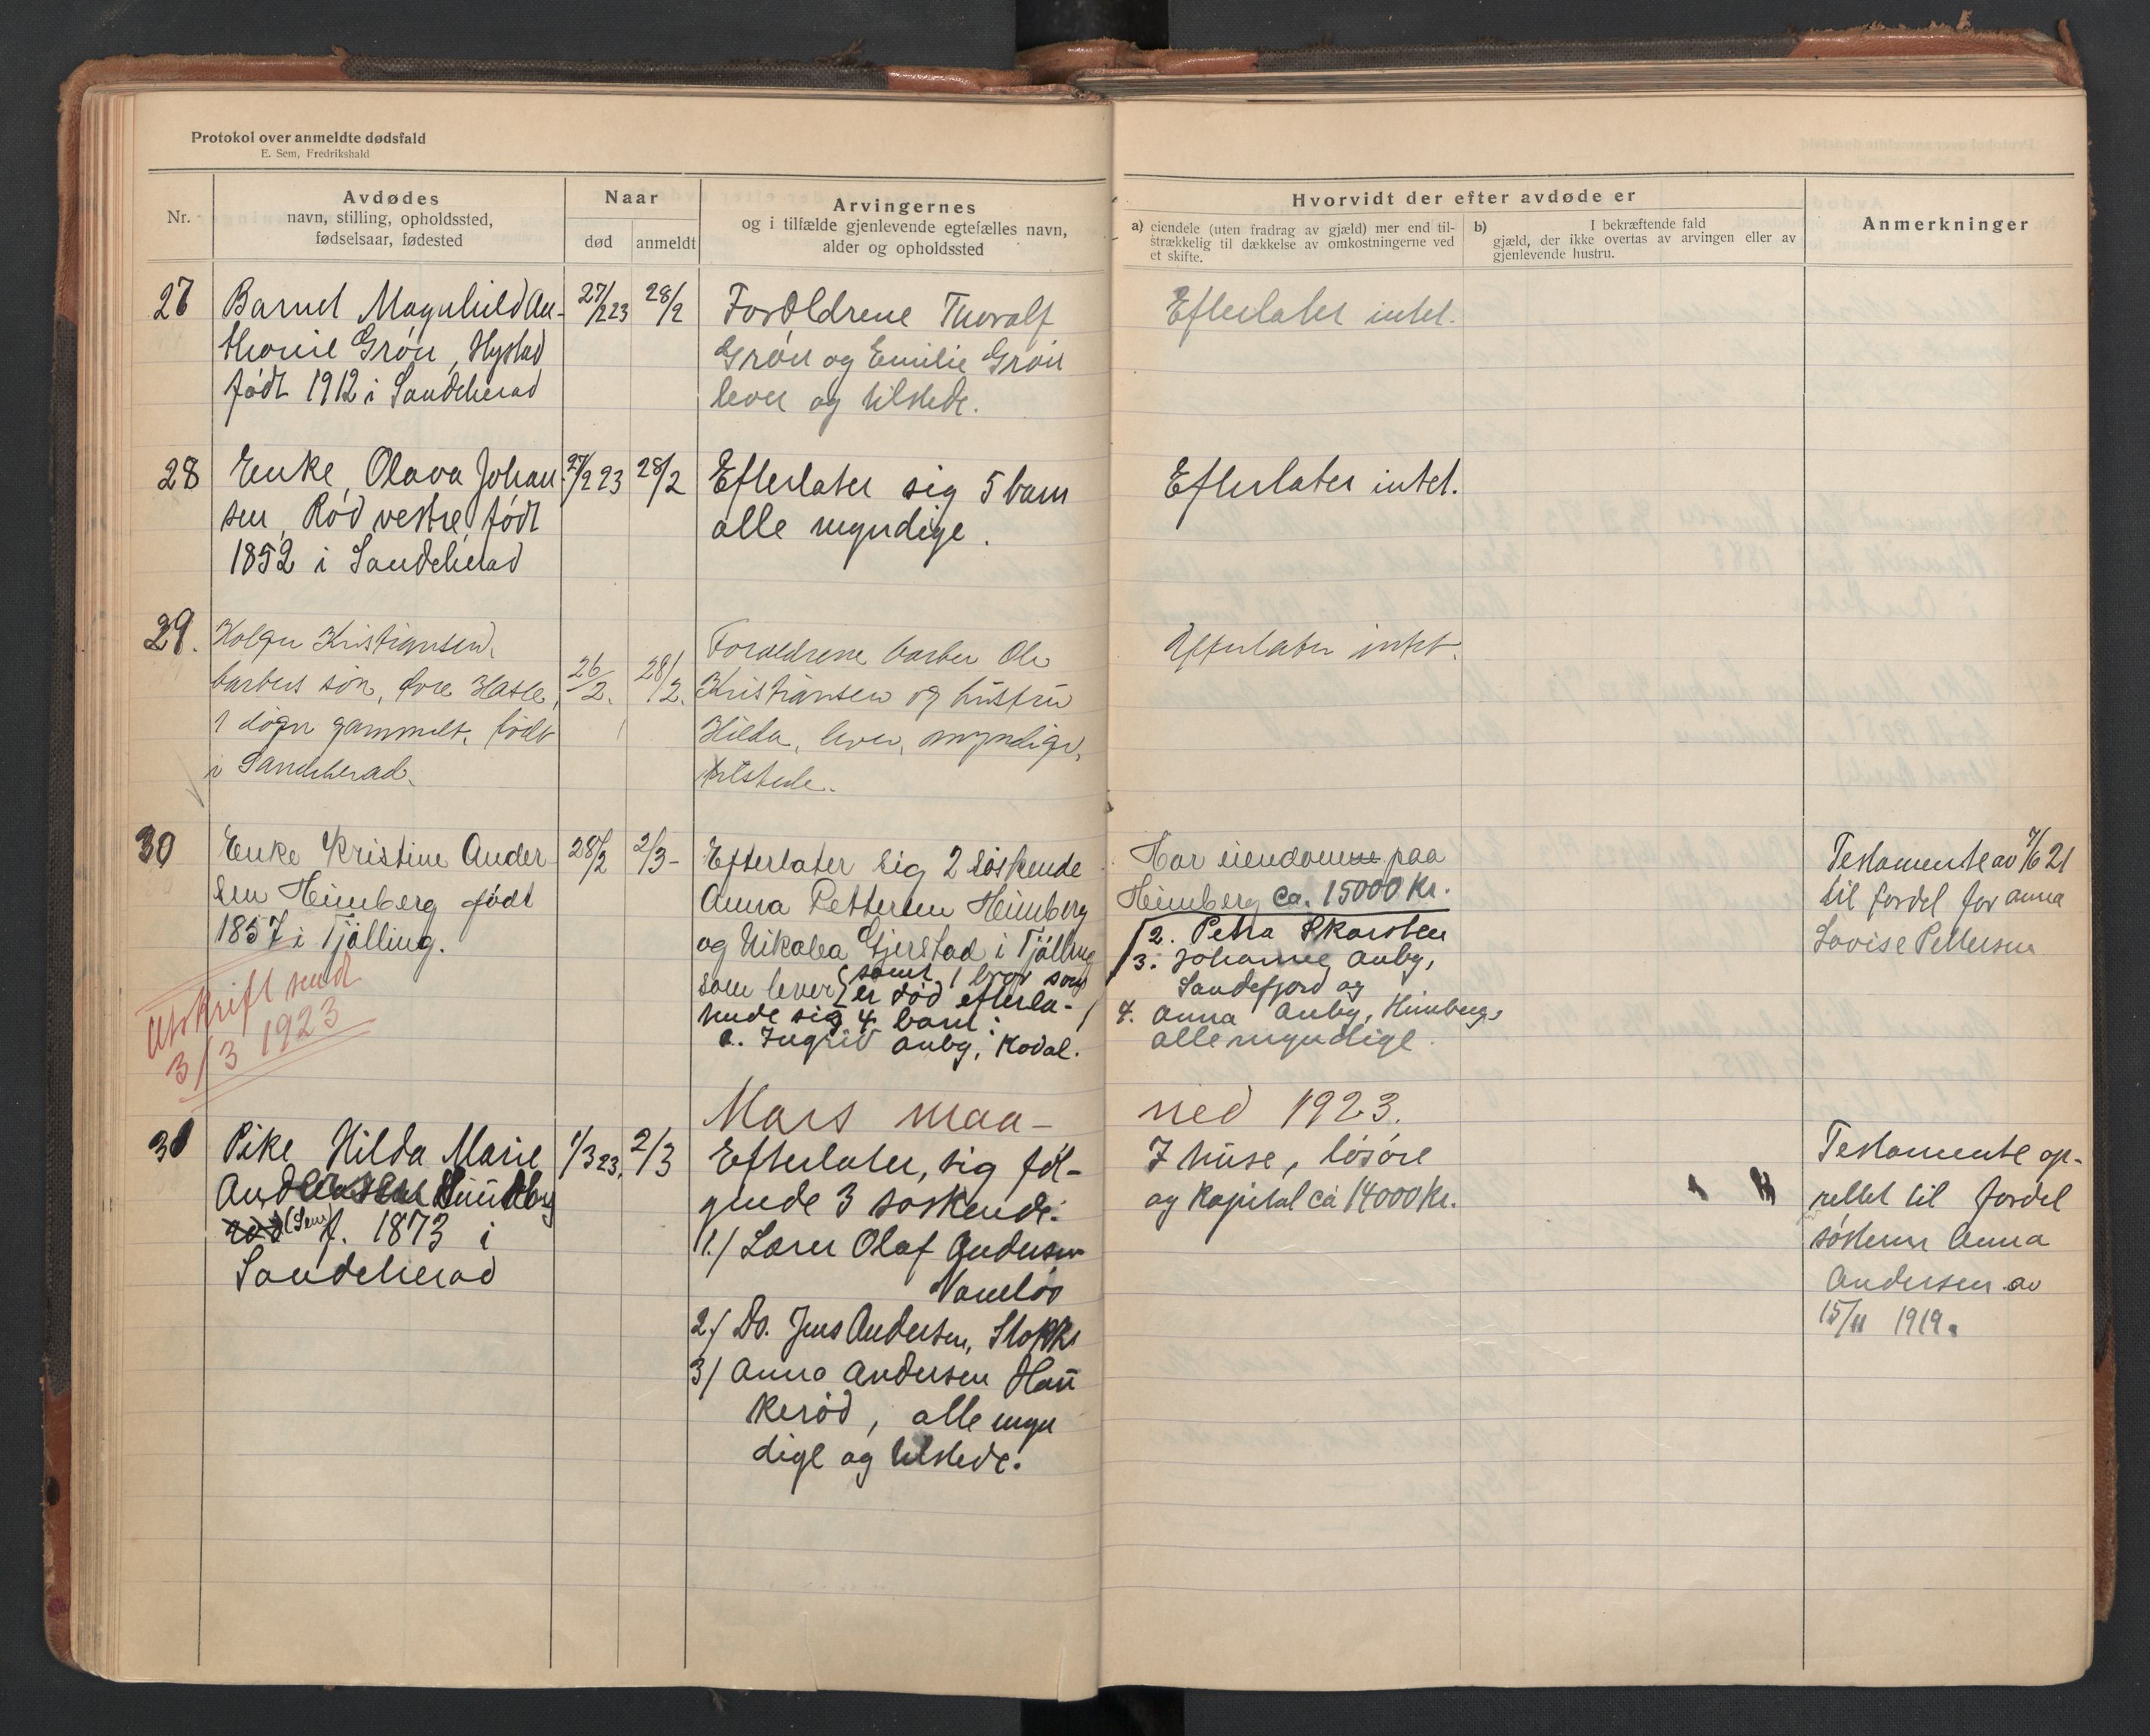 Protokol over anmeldte dødsfald
E. Sem, Fredrikshald
Nr.
Avdødes
navn, stilling, opholdssted,
fødselsaar, fødested
Naar
død
anmeldt
Arvingernes
og i tilfælde gjenlevende egtefælles navn,
alder og opholdssted
Hvorvidt der efter avdøde er
a) eiendele (uten fradrag av gjæld) mer end til-
strækkelig til dækkelse av omkostningerne ved
et skifte.
b) I bekræftende fald
gjæld, der ikke overtas av arvingen eller av
gjenlevende hustru.
Anmerkninger
27
Barnet Magnhild An-
thonie Grøn, Hystad
født 1912 i Sandeherad
27/2 23
28/2
Forældrene Thoralf
Grøn og Emilie Grøn
lever og tilstede.
Efterlater intet.
28
Enke, Olava Johan
sen, Rød vestre, født
1852 i Sandeherad
27/2 23
28/2
Efterlater sig 5 barn
alle myndige.
Efterlater intet.
29.
Holger Kristiansen,
barbers søn, øvre Hasle,
1 døgn gammelt, født
i Sandeherad.
26/2.
28/2.
Forældrene barber Ole
Kristiansen og hustru
Hilda, lever, myndige,
tilstede.
Efterlater intet.
30
Enke Kristine Ander
sen Heimberg født
1857 i Tjølling.
28/2
2/3-
Efterlater sig 2 søskende
Anna Pettersen Heimberg
og Nikolea Gjerstad i Tjølling
som lever (samt 1 bror som
er død efterla-
tende sig 4 barn:
1. Ingrid Auby, Kodal.
Har eiendomme paa
Heimberg ca. 15000 Kr.
2. Petra Skarsten
3. Johanne Auby,
Sandefjord og
4. Anna Auby, Himberg,
alle myndige.
Testamente av 7/6 21
til fordel for Anna
Lovise Pettersen
Utskrift sendt
3/3 1923
Mars maa-
ned 1923.
31
Pike Hilda Marie
Andersen
(Sem) f. 1873 i
Sandeherad
1/3 23.
2/3
Efterlater, sig føl-
gende 3 søskende:
1.) Lærer Olaf Andersen
Naueløs
2.) Do. Jens Andersen, Stokke
3) Anna Andersen Hau
kerød, alle myn
dige og tilstede.
I huse, løsøre
og Kapital ca 14000 Kr.
Testamente op-
rettet til fordel
søsteren Anna
Andersen av
15/11 1919.